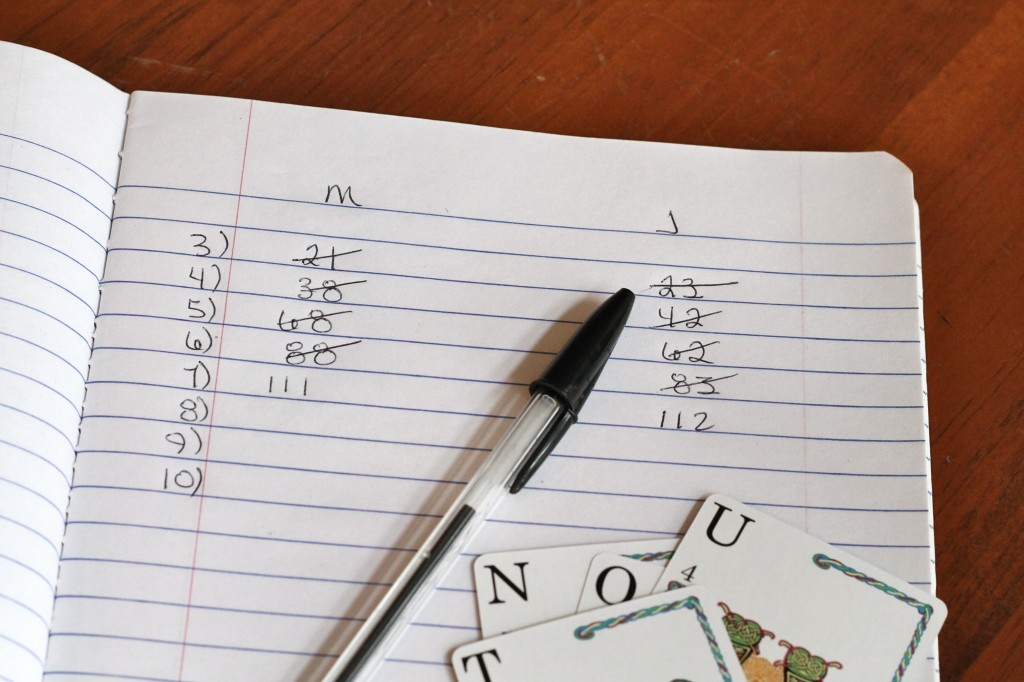 M J
3) 21 23
4) 38 42
5) 68 62
6) 88 83
7) 111 112
8)
9)
10)
U
4
N O
T